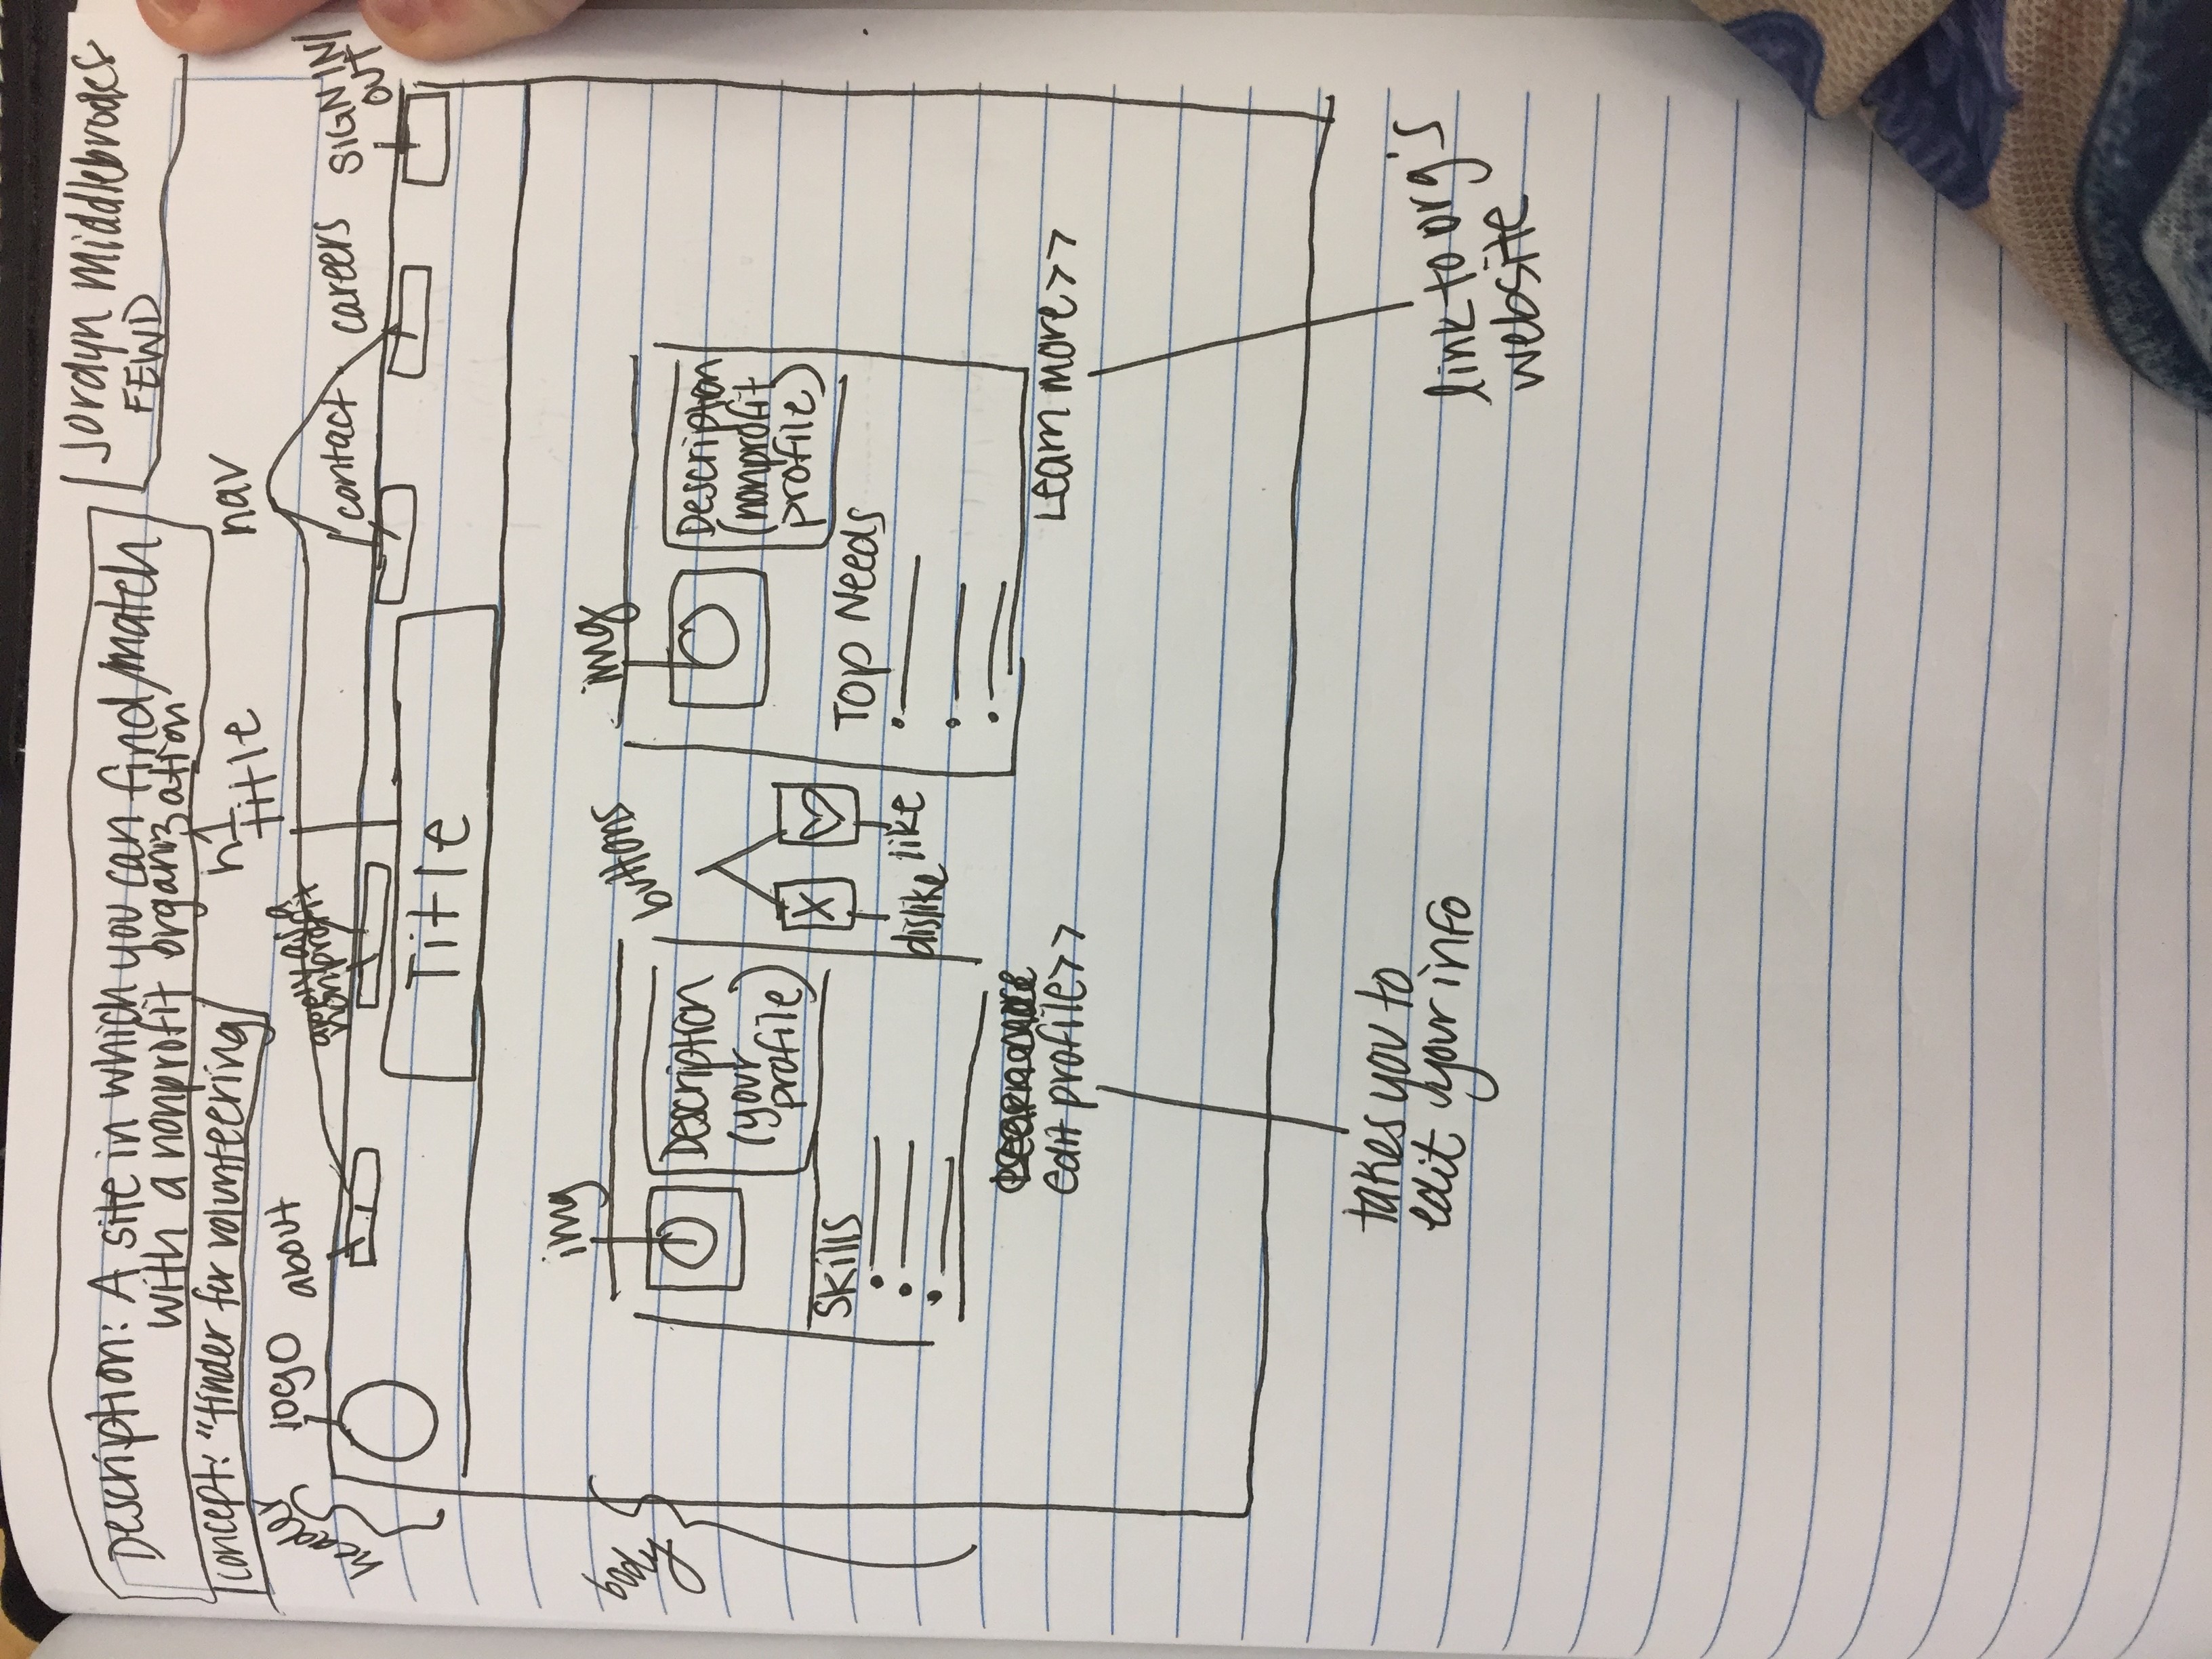 Description: A site in which you can find/match
with a nonprofit organization
Jordyn Middlebrooks
FEWD
concept: "tinder for volunteering
h1
title
nav
header
logo
about
apply as a
nonprofit
contact
careers
SIGN IN/
OUT
Title
body
img
buttons
img
Description
(your
profile)
Description
(nonprofit
profile)
X
Skills
Top Needs
dislike
like
edit profile>>
Learn more>>
takes you to
edit your info
link to org's
website